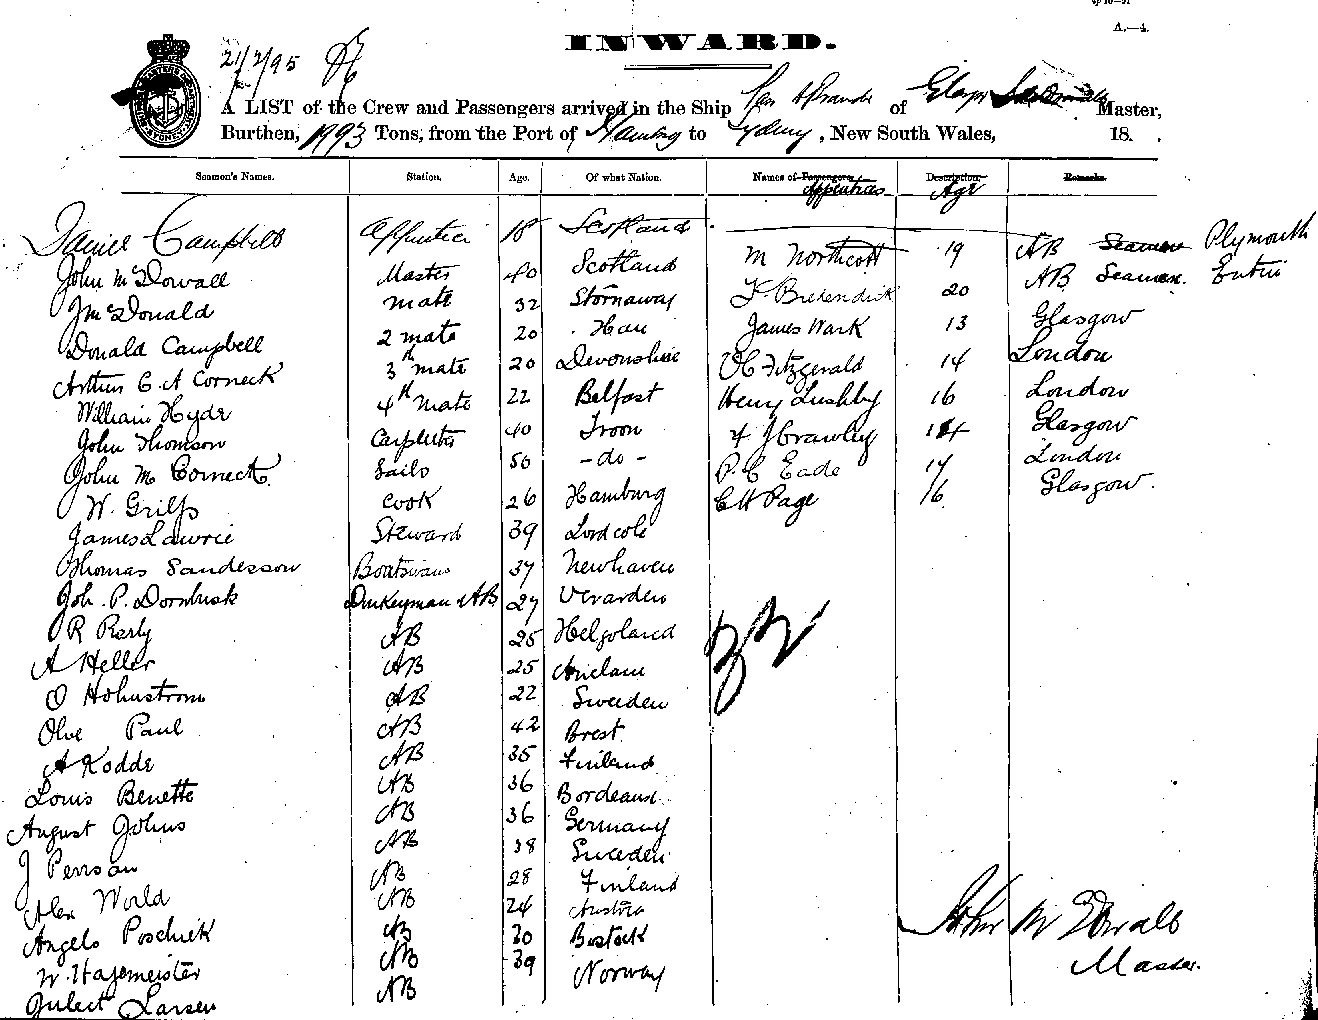 A.—4.
INWARD.
21/2/95
A LIST of the Crew and Passengers arrived in the Ship of Glasgow Master,
Burthen, 1993 Tons, from the Port of Hamburg to Sydney, New South Wales, 18.
Seamen's Names. Station. Age. Of what Nation. Names of Passengers Apprentices Description. Age Remarks.
Daniel Campbell Apprentice 18 Scotland
John McDowall Master 40 Scotland M Northcott 19 AB Seaman Plymouth
J McDonald Mate 32 Stornaway F Bredendick 20 AB Seaman. Eutin
Donald Campbell 2 mate 20 James Wark 13 Glasgow
Arthur C. A Corneck 3rd mate 20 Devonshire Fitzgerald 14 London
William Hyde 4th Mate 22 Belfast Henry Lushby 16 London
John Thomson Carpenter 40 Troon J Crawley 14 Glasgow
John M Corneck Sails 50 -do- P. C Eade 17 London
W. Grilfs Cook 26 Hamburg C H Page 16 Glasgow.
James Lawrie Steward 39
Thomas Sandesson Boatswain 37 Newhaven
Joh. P. Dornbusk Donkeyman & AB 27
R Rarly AB 25 Helgoland
A Heller AB 25 Anclam
O Holmstrom AB 22 Sweden
Olve Paul AB 42 Brest
A Kodde AB 35 Finland
Louis Benette AB 36 Bordeaux
August Johns AB 36 Germany
J Persson AB 38 Sweden
Alex World AB 28 Finland
Angelo Poschick AB 24 Austria
W. Hagemeister AB 30 Rostock
Larsen AB 39 Norway
John McDowall
Master.